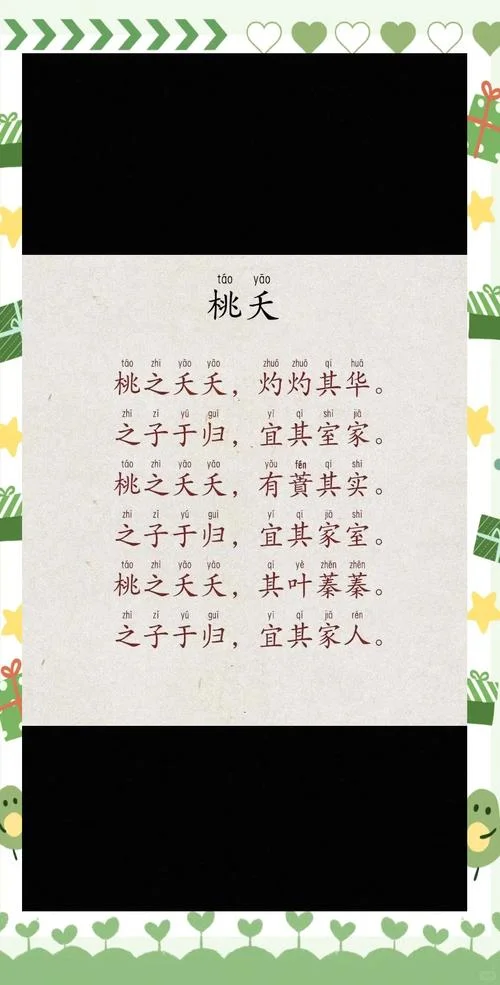 táo yāo
桃夭
táo zhī yāo yāo zhuó zhuó qí huá
桃之夭夭，灼灼其华。
zhī zǐ yú guī yí qí shì jiā
之子于归，宜其室家。
táo zhī yāo yāo yǒu fén qí shí
桃之夭夭，有蕡其实。
zhī zǐ yú guī yí qí jiā shì
之子于归，宜其家室。
táo zhī yāo yāo qí yè zhēn zhēn
桃之夭夭，其叶蓁蓁。
zhī zǐ yú guī yí qí jiā rén
之子于归，宜其家人。